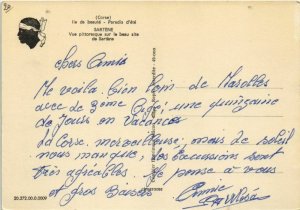 (Corse)
Ile de beauté - Paradis d'été
SARTENE
Vue pittoresque sur le beau site
de Sartène
chers Amis
Me voila bien loin de Marolles
avec de 3ème âge, une quinzaine
de jours en Vacances
La Corse, merveilleuse, mais de soleil
nous manque, les excursions sont
très agréables. Je pense a vous
et gros Baisers
20.272.00.0.0009